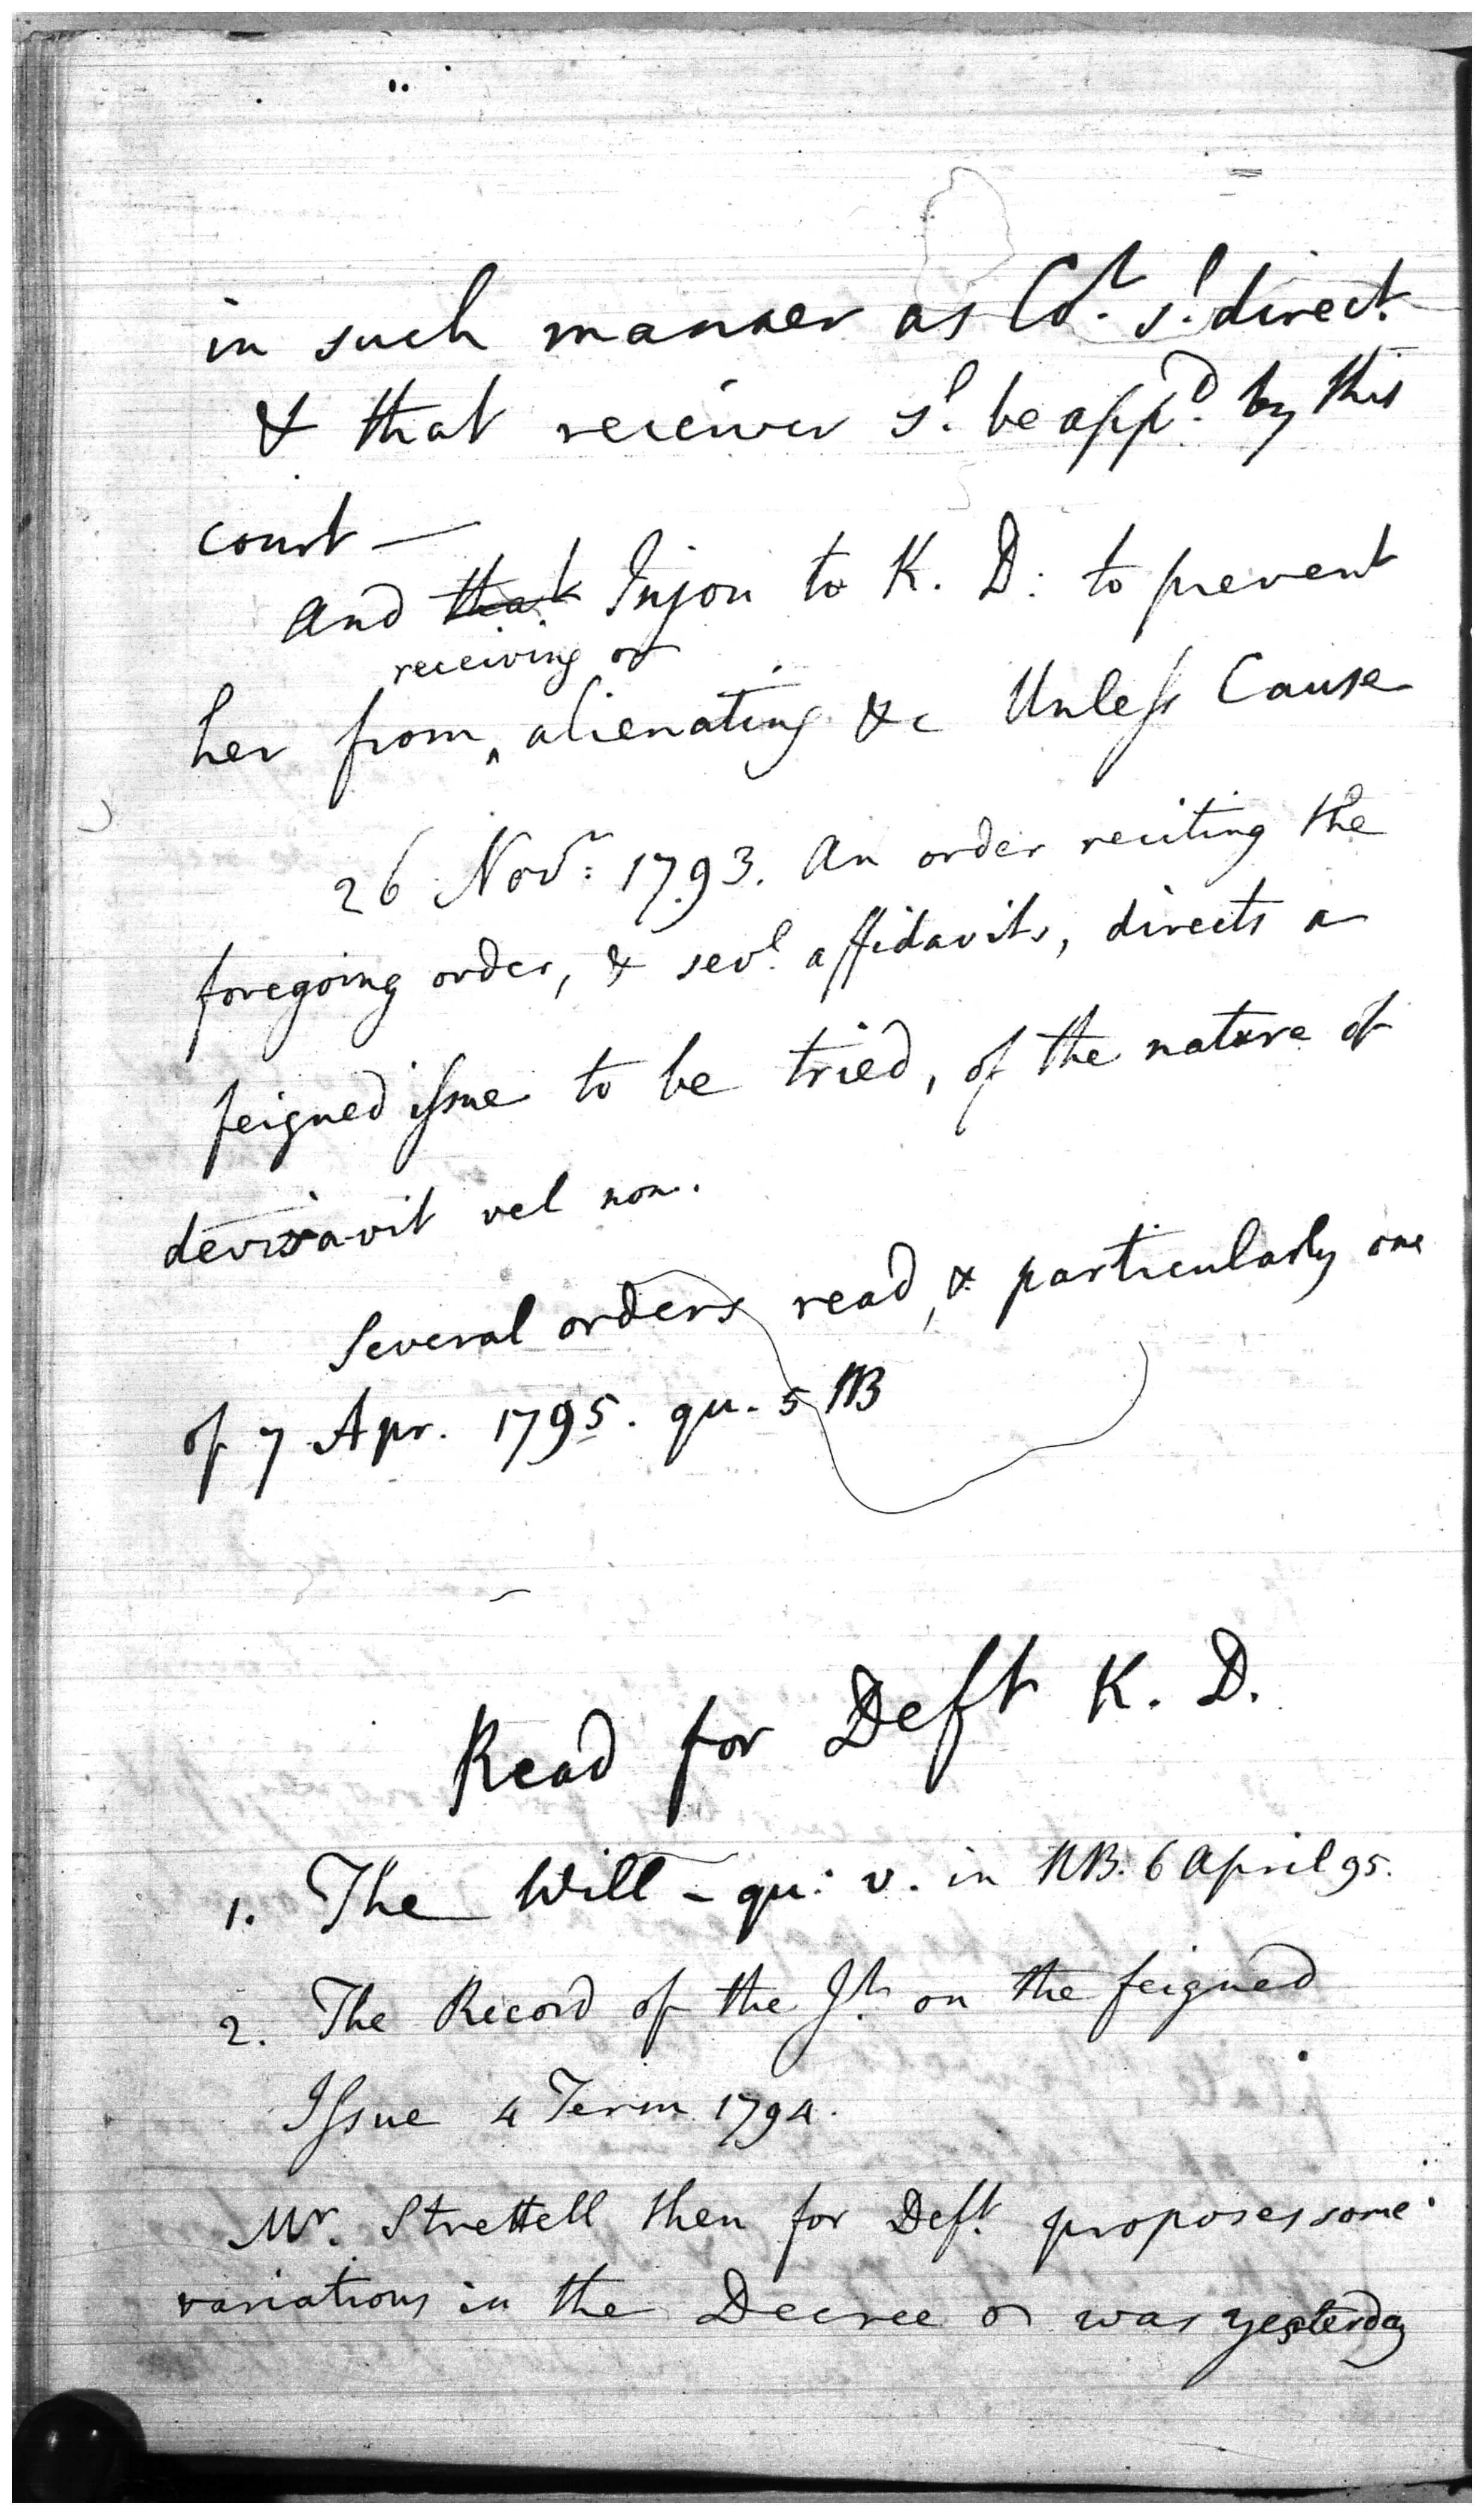 in such manner as Co.t s.d direct
& that receiver s.d be app.d by this
court —
And that Injon to K. D: to prevent
receiving or
her from ‸ alienating &c Unless Cause
26 Nov.r 1793. An order reciting the
foregoing order, & sev.l affidavits, directs a
feigned issue to be tried, of the nature of
devisavit vel non.
Several orders read, & particularly one
of 7 Apr. 1795. qu. 5 NB
Read for Deft K. D.
1. The Will - qu: v. in NB. 6 April 95.
2. The Record of the J.t on the feigned
Issue 4 Term 1794.
Mr. Strettell then for Deft. proposes some
variations in the Decree was yesterday